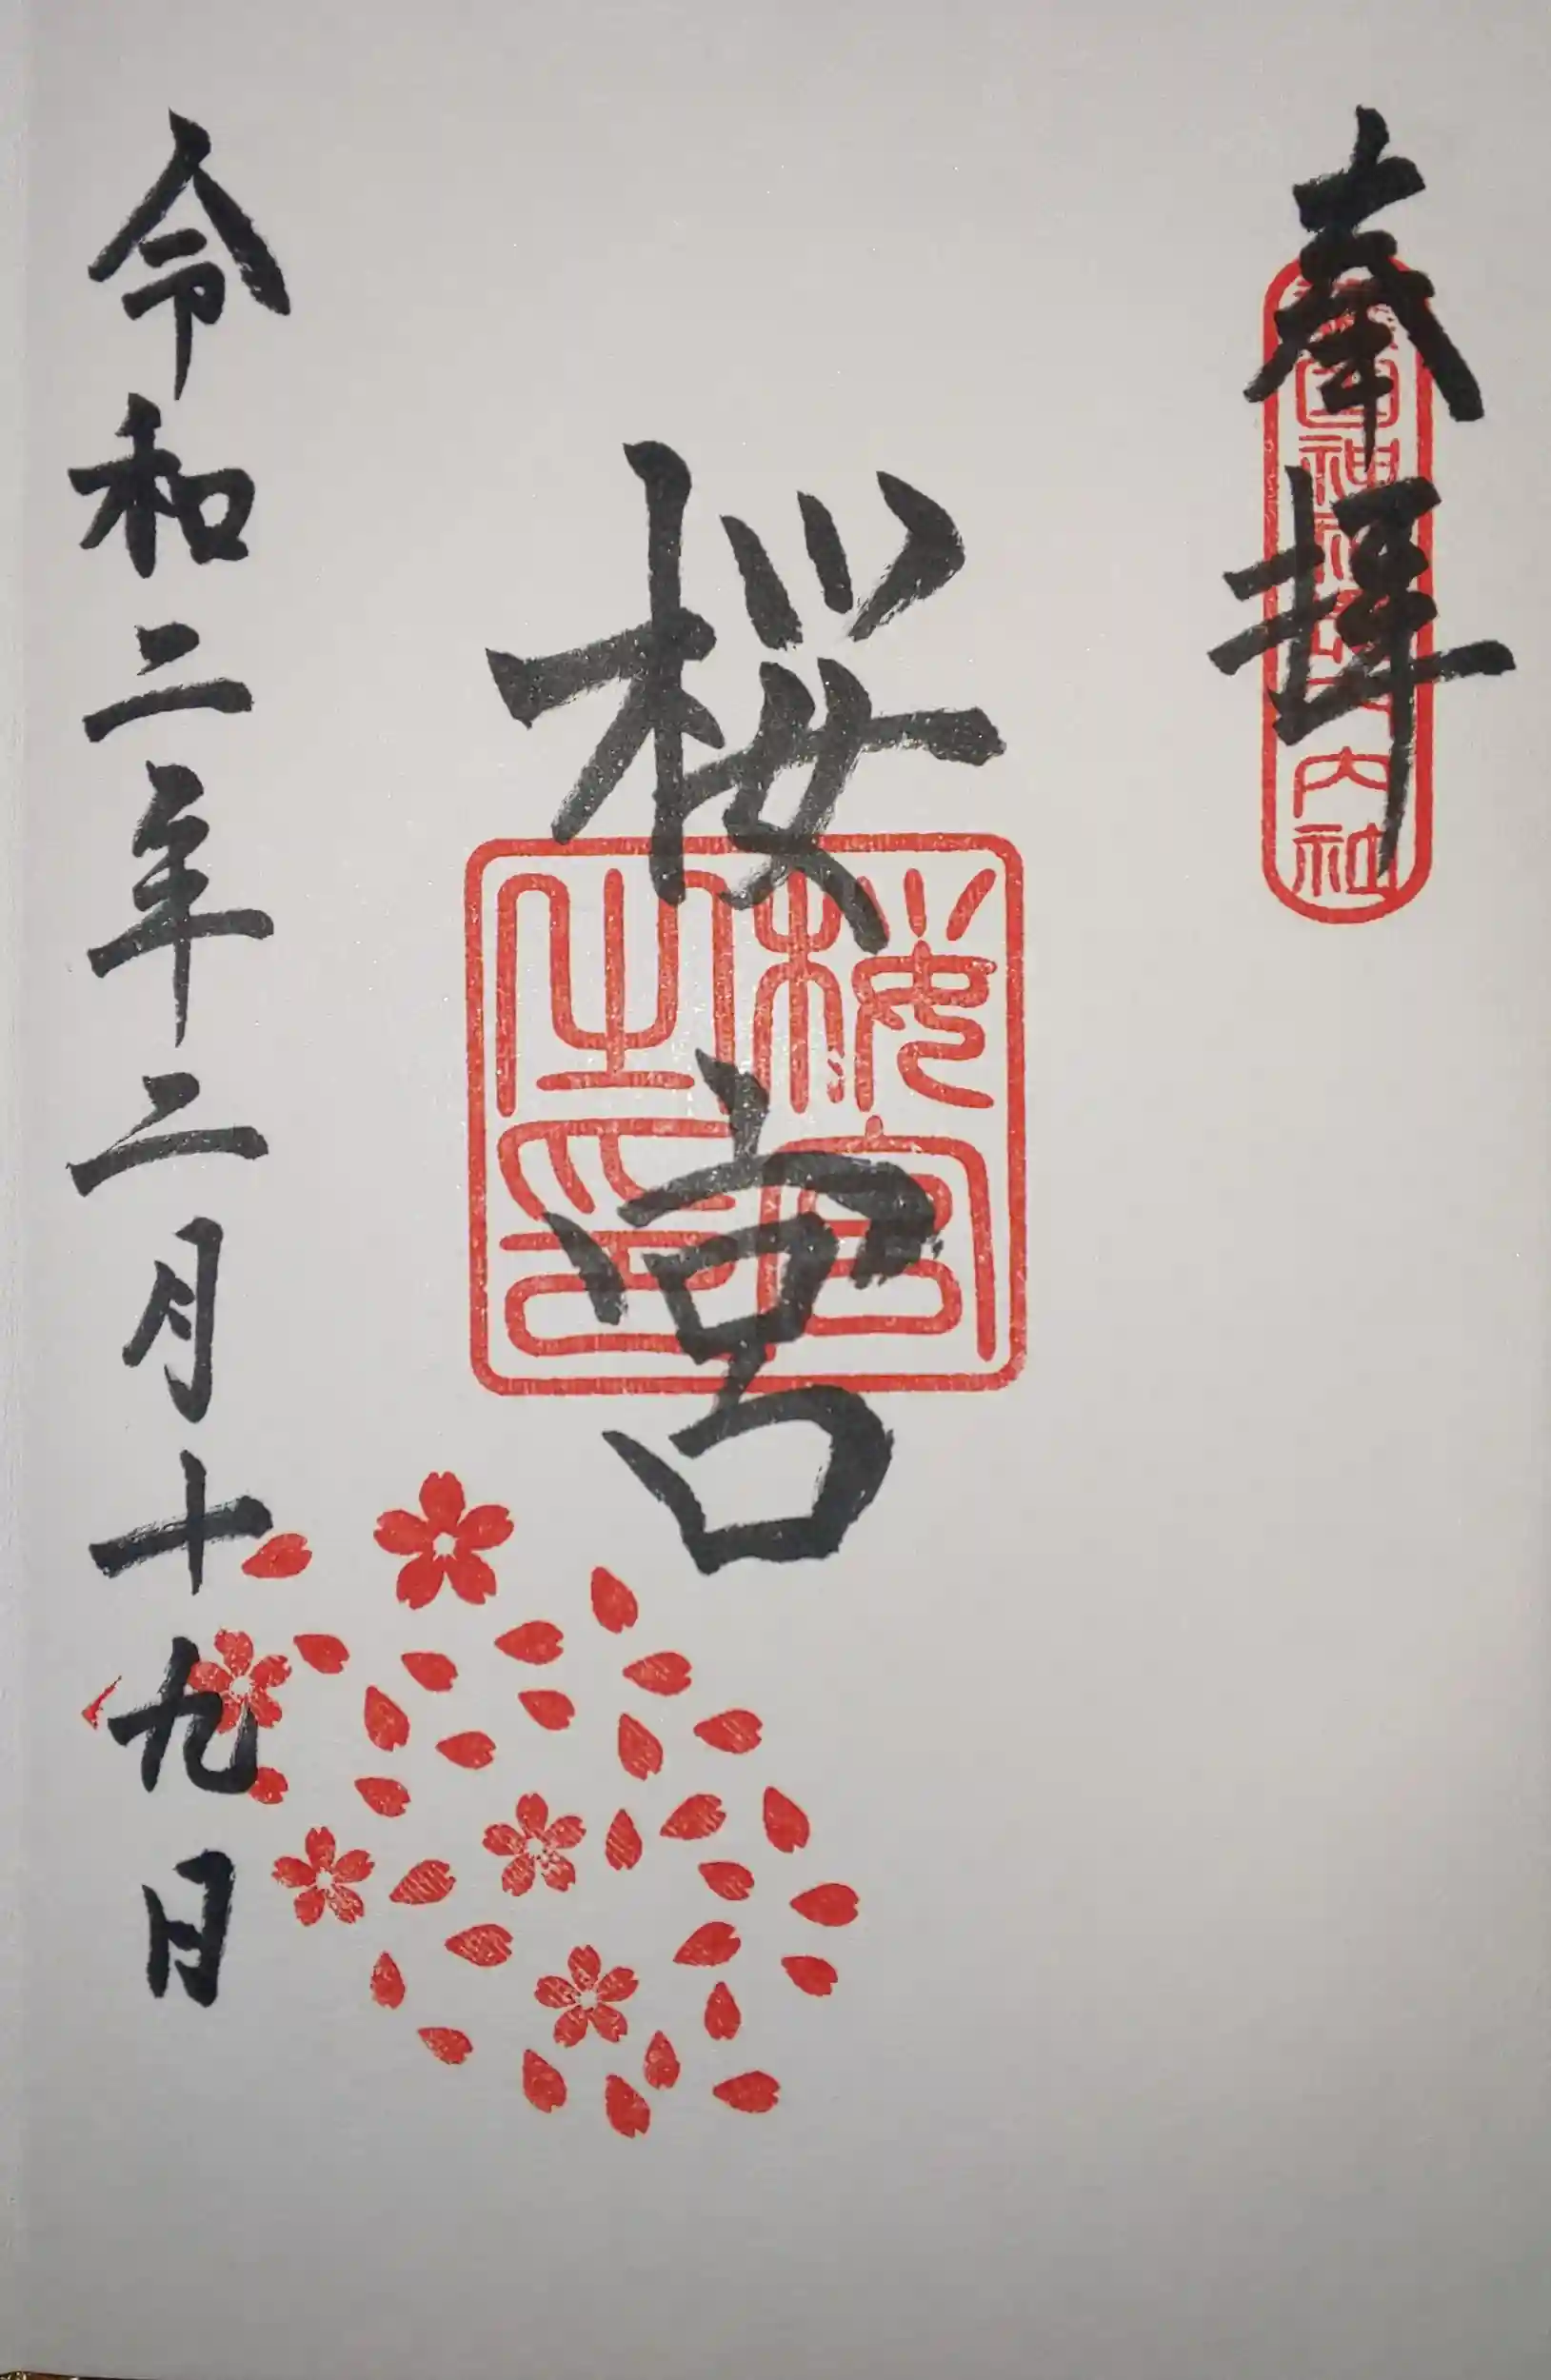 奉拝
内社
桜宮
桜宮之印
令和二年二月十九日